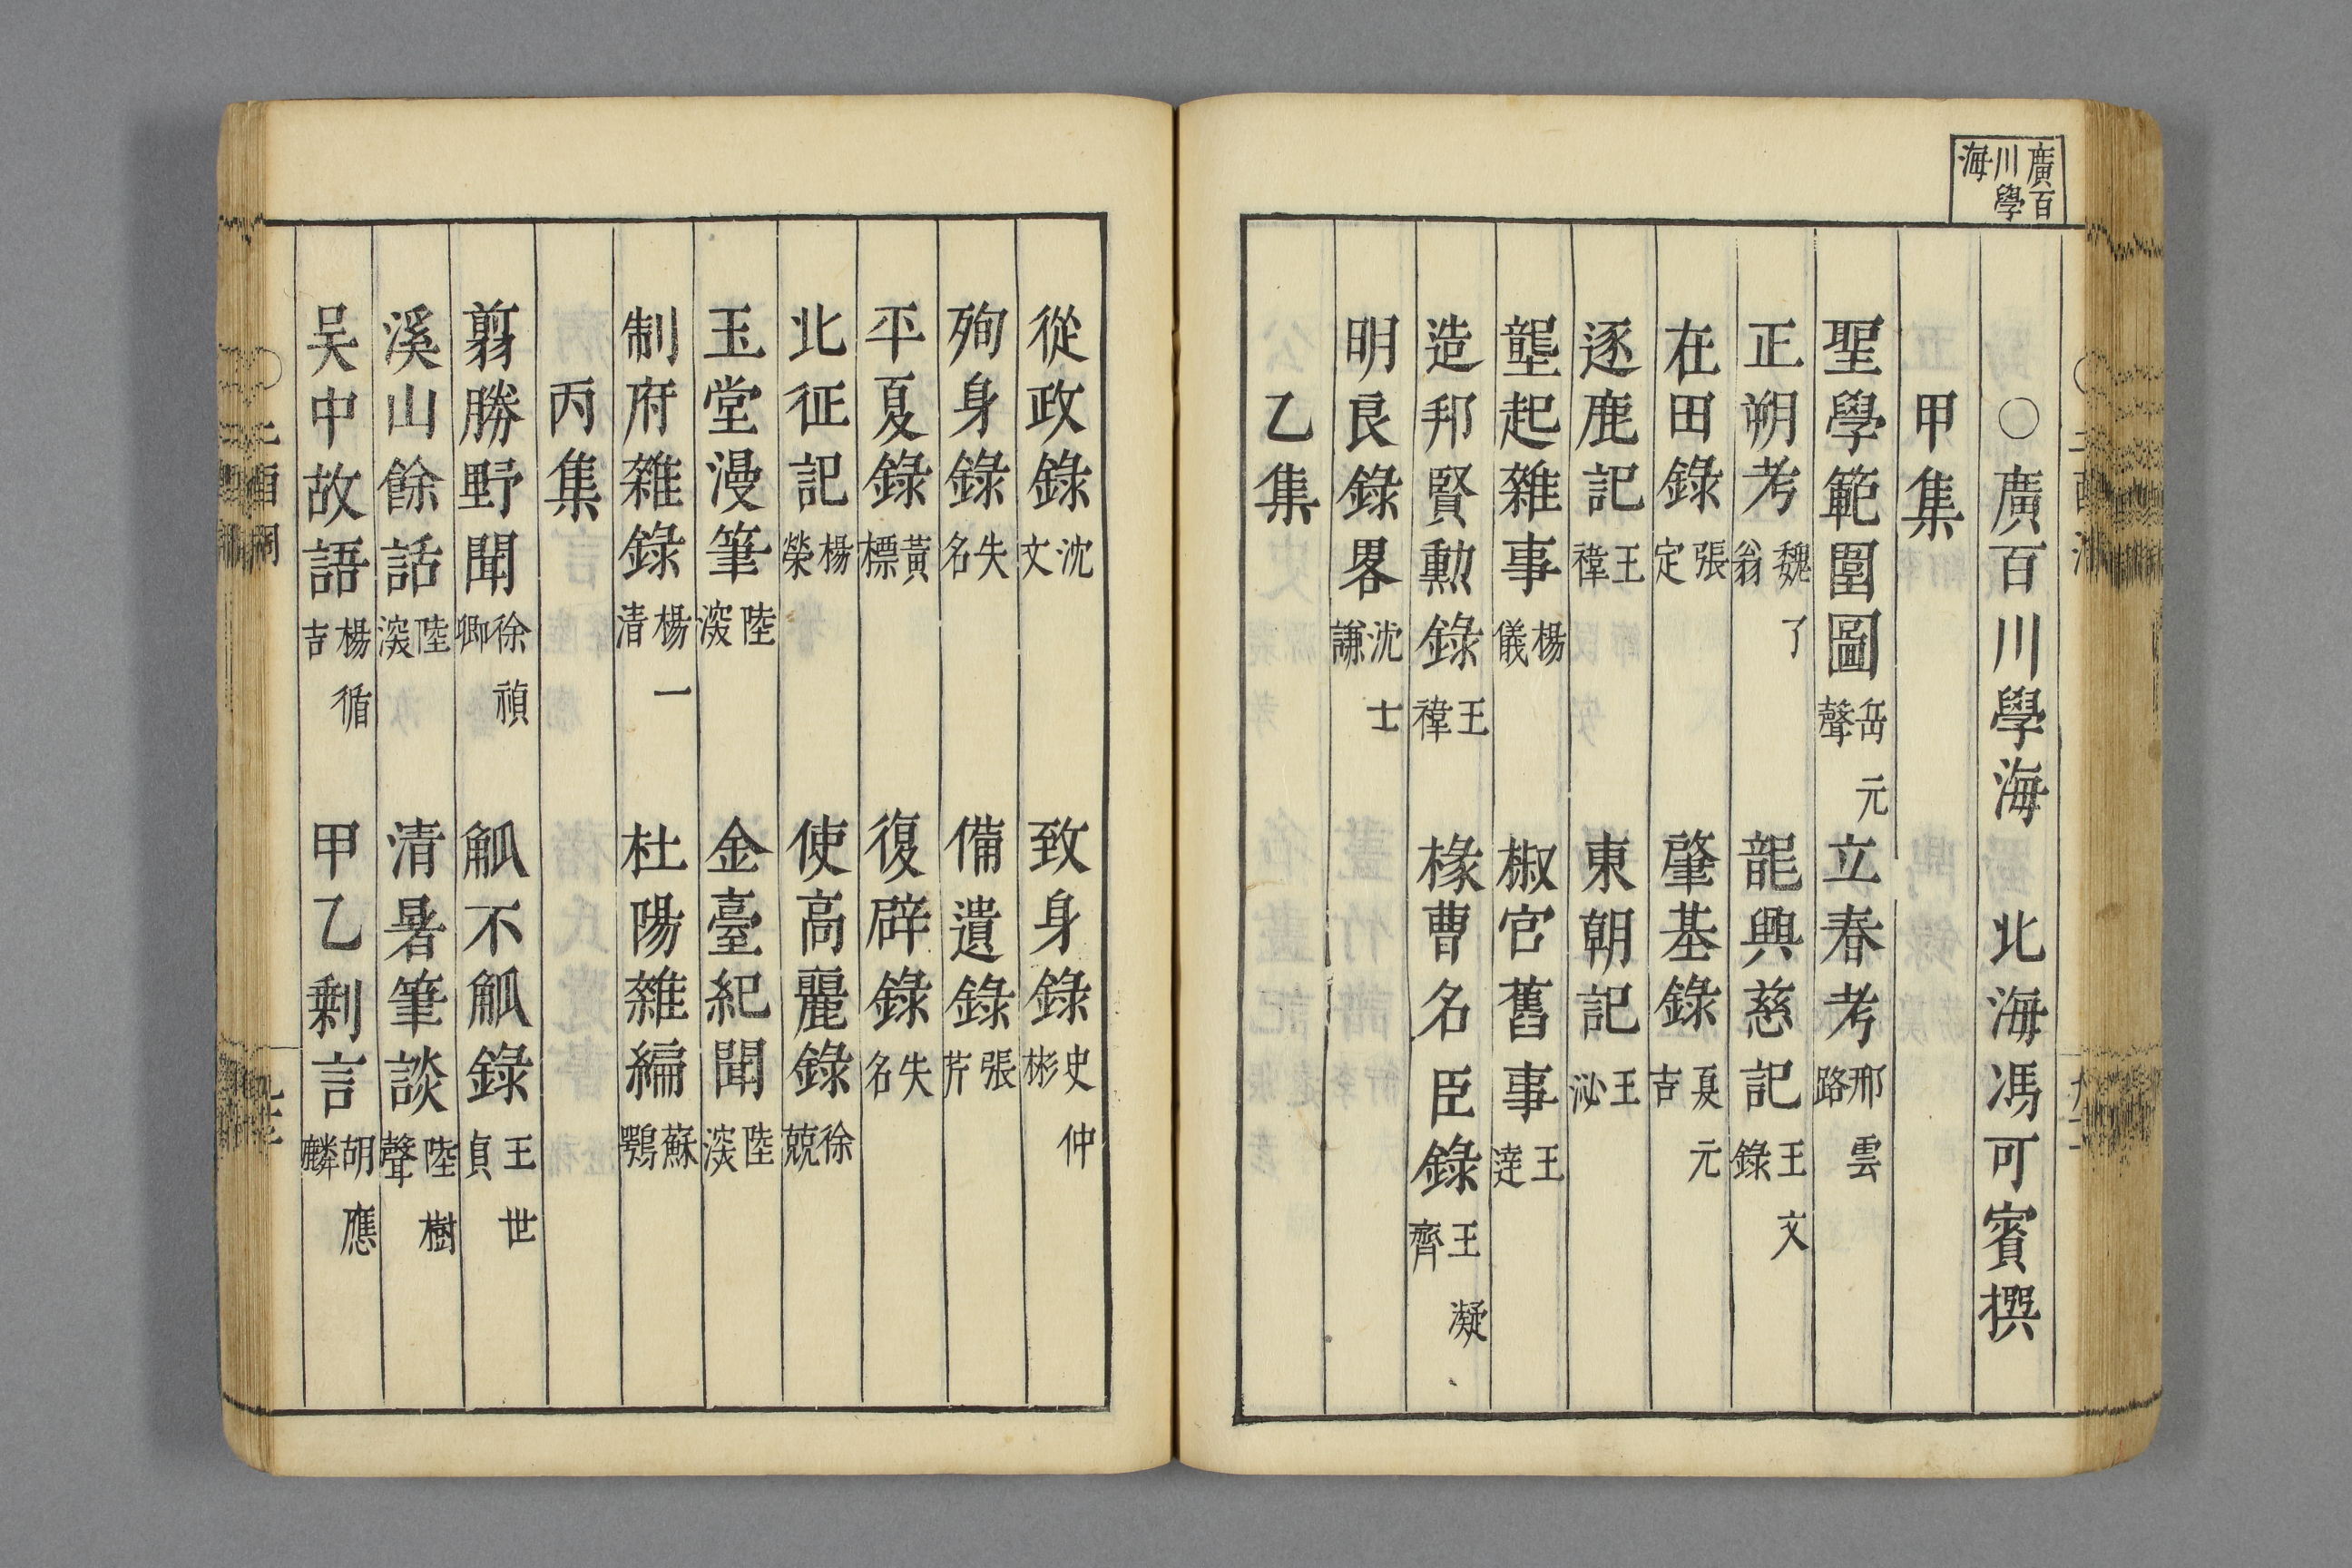 廣百川學海
○廣百川學海 北海馮可賓撰
甲集
聖學範圍圖 岳元聲 立春考 邢雲路
正朔考 魏了翁 龍興慈記 王文錄
在田錄 張定 肇基錄 夏元吉
逐鹿記 王褘 東朝記 王泌
壟起雜事 楊儀 椒官舊事 王逹
造邦賢勲錄 王褘 椽曹名臣錄 王凝齊
明良錄畧 沈士謙
乙集
從政錄 沈文 致身錄 史仲彬
殉身錄 失名 備遺錄 張芹
平夏錄 黃標 復辟錄 失名
北征記 楊榮 使高麗錄 徐兢
玉堂漫筆 陸深 金臺紀聞 陸深
制府雜錄 楊一清 杜陽雜編 蘇鶚
丙集
翦勝野聞 徐禎卿 觚不觚錄 王世貞
溪山餘話 陸深 清暑筆談 陸樹聲
吴中故語 楊循吉 甲乙剩言 胡應麟